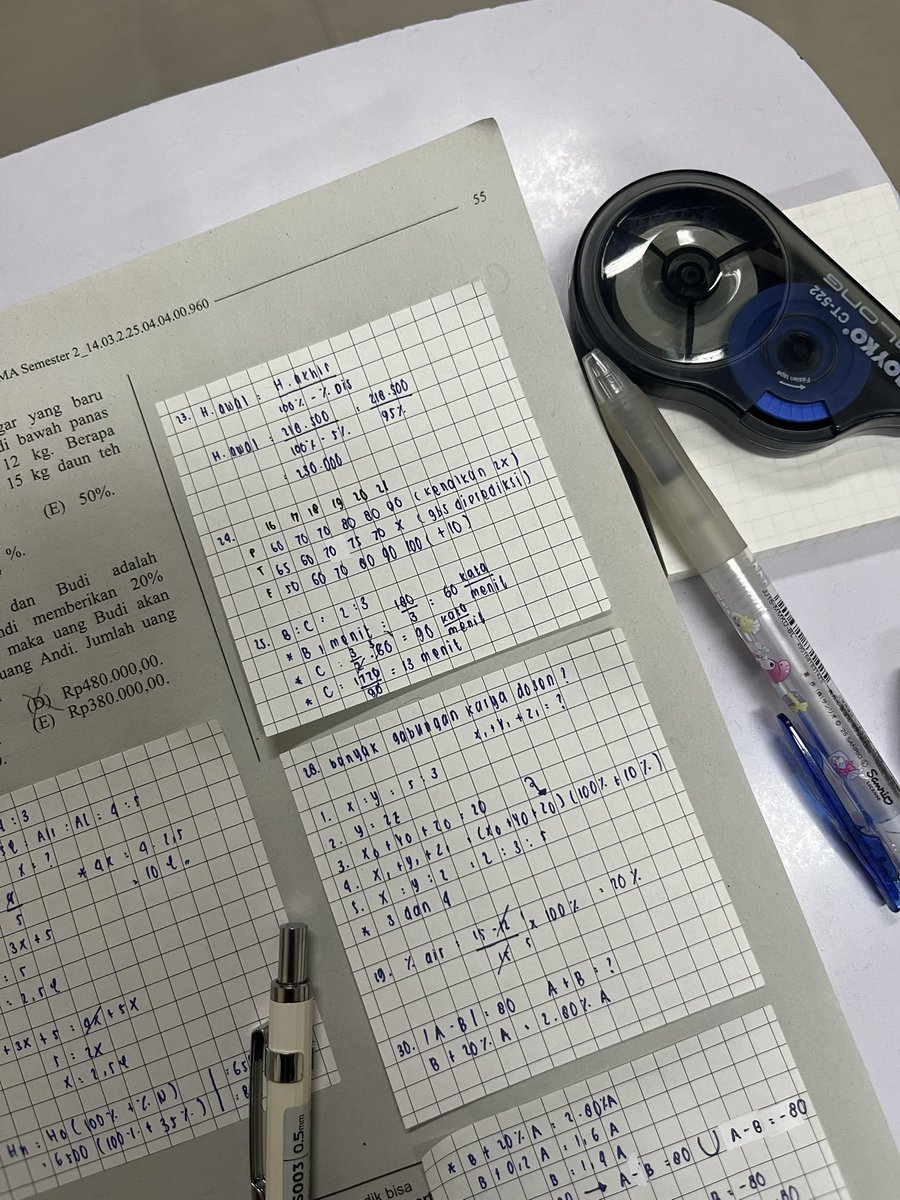 55
MA Semester 2_14.03.2.25.04.04.00.960
gar yang baru
di bawah panas
12 kg. Berapa
15 kg daun teh
(E) 50%.
%.
dan Budi adalah
ndi memberikan 20%
maka uang Budi akan
uang Andi. Jumlah uang
(D) Rp480.000,00.
(E) Rp380.000,00.
23. H. awal : H. akhir
100% - % Dis
H. awal : 218.500 : 218.500
100% - 5% 95%
: 230.000
16 17 18 19 20 21
24. P 60 70 70 80 80 90 (kenaikan 2x)
T 65 60 70 75 70 X (gbs diprediksi)
F 50 60 70 80 90 100 (+10)
25. B : C : 2 : 3
* B 1 menit : 180 : 60 kata
3 menit
* C : 3 . 60 = 90 kata
2 menit
* C : 1170 : 13 menit
90
28. banyak gabungan karya dosen?
x₁ + y₁ + z₁ = ?
1. x : y : 5 : 3
2. y = 2z
3. x₀ + 40 + 20 + 20
4. x₁ + y₁ + z₁ = (x₀ + y₀ + z₀) (100% + 10%)
5. x : y : z : 2 : 3 : 5
* 3 dan 4
29. % air : 15 - 12 x 100% : 20%
15
30. |A - B| = 80 A + B = ?
B + 20% A = 2.80% A
x = ?
* 4x : 4 . 2,5
: 10 l.
5
3x + 5
: 5
: 2,5 l
+ 3x + 5 : 9x + 5x
5 : 2x
x : 2,5 l
Hn : H0 (100% + % N)
: 6500 (100% + 35%)
* B + 20% A = 2.80% A
B + 0,2 A : 1,6 A
B : 1,4 A
A - B = 80 ∪ A - B = -80
JOYKO
CT-522
Sanrio
0.5mm
dik bisa